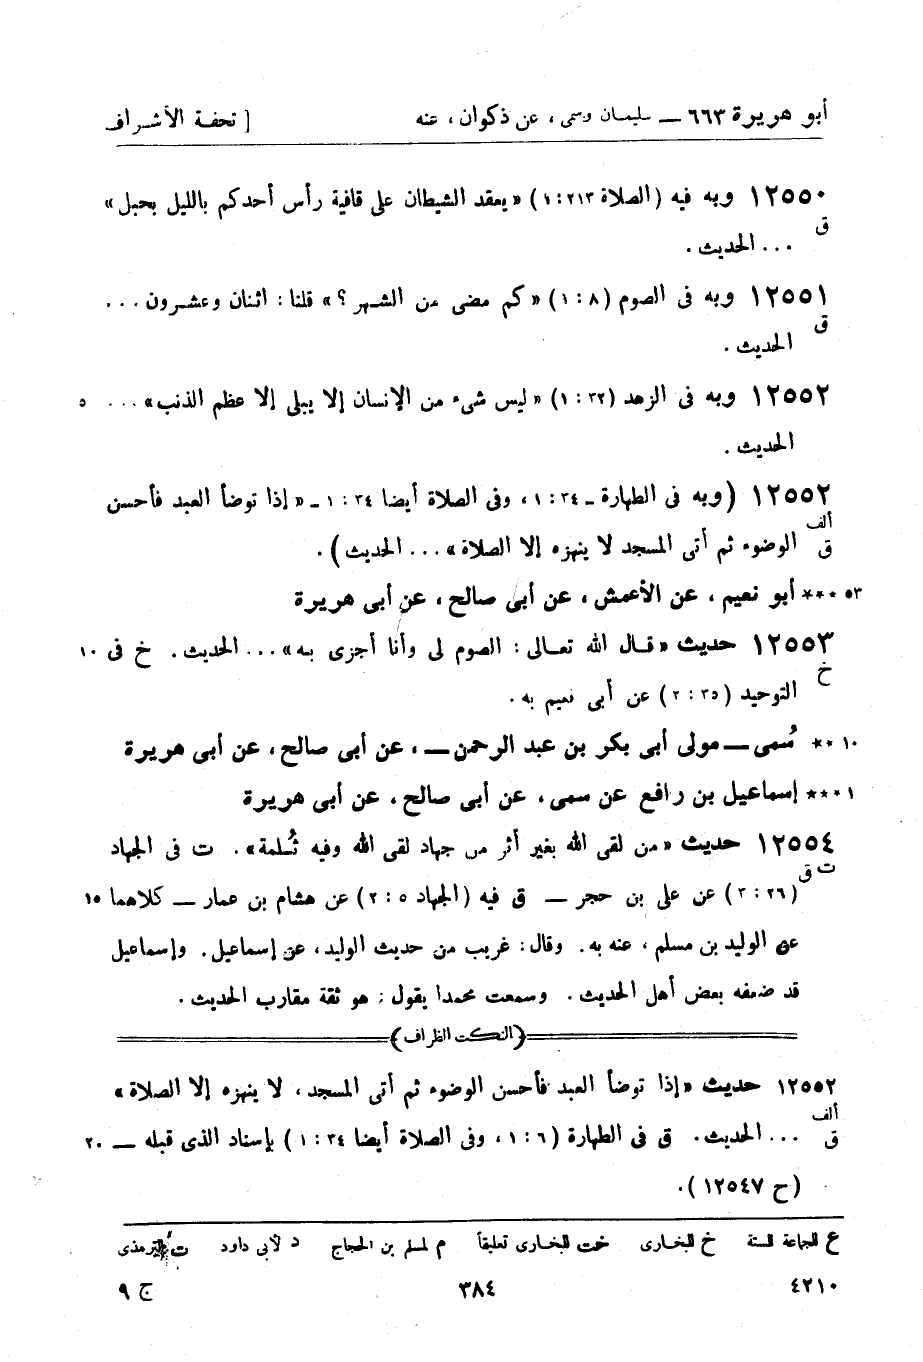 أبو هريرة ٦٦٣ ــ سليمان وسمى، عن ذكوان، عنه [ تحفة الأشراف
١٢٥٥٠ وبه فيه (الصلاة ٢١٣ : ١) «يعقد الشيطان على قافية رأس أحدكم بالليل بحبل»
ق
... الحديث .
١٢٥٥١ وبه فى الصوم (٨ : ١) «كم مضى من الشهر ؟» قلنا : اثنان وعشرون ...
ق
الحديث .
١٢٥٥٢ وبه فى الزهد (٣٢ : ١) «ليس شىء من الإنسان إلا يبلى إلا عظم الذنب» ... ٥
الحديث .
١٢٥٥٢ (وبه فى الطهارة ـ ٣٤ : ١، وفى الصلاة أيضا ٣٤ : ١ ـ «إذا توضأ العبد فأحسن
ألف
ق الوضوء ثم أتى المسجد لا ينهزه إلا الصلاة» ... الحديث) .
٥٣ *** أبو نعيم ، عن الأعمش ، عن أبى صالح ، عن أبى هريرة
١٢٥٥٣ حديث «قال الله تعالى : الصوم لى وأنا أجزى به» ... الحديث . خ فى ١٠
خ
التوحيد (٣٥ : ٢) عن أبى نعيم به .
١٠ ** سُمى ــ مولى أبى بكر بن عبد الرحمن ــ ، عن أبى صالح ، عن أبى هريرة
١ *** إسماعيل بن رافع عن سمى ، عن أبى صالح ، عن أبى هريرة
١٢٥٥٤ حديث «من لقى الله بغير أثر من جهاد لقى الله وفيه ثُلمة» . ت فى الجهاد
ت ق
(٢٦ : ٣) عن على بن حجر ــ ق فيه (الجهاد ٥ : ٢) عن هشام بن عمار ــ كلاهما ١٥
عن الوليد بن مسلم ، عنه به . وقال : غريب من حديث الوليد ، عن إسماعيل . وإسماعيل
قد ضعفه بعض أهل الحديث . وسمعت محمدا يقول : هو ثقة مقارب الحديث .
(النكت الظراف)
١٢٥٥٢ حديث «إذا توضأ العبد فأحسن الوضوء ثم أتى المسجد ، لا ينهزه إلا الصلاة»
ألف
ق ... الحديث . ق فى الطهارة (٦ : ١، وفى الصلاة أيضا ٣٤ : ١) بإسناد الذى قبله ــ ٢٠
(ح ١٢٥٤٧) .
ع للجماعة الستة خ للبخارى خت للبخارى تعليقاً م لمسلم بن الحجاج د لأبى داود ت للترمذى
٤٢١٠ ٣٨٤ ج ٩